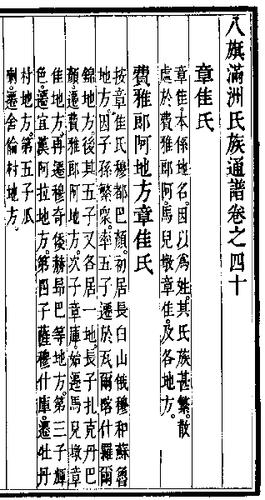 八旗滿洲氏族通譜卷之四十
章佳氏
章佳。本係地名。因以爲姓。其氏族甚繁。散
處於費雅郎阿。馬兒墩。章佳。及各地方。
費雅郎阿地方章佳氏
按章佳氏穆都巴顏。初居長白山俄穆和蘇魯
地方。因子孫繁衆。率五子遷於瓦爾喀什羅爾
錦地方。後其五子又各居一地。長子扎克丹巴
顏。遷費雅郎阿地方。次子章庫。始遷馬兒墩章
佳地方。再遷穆奇倭赫昻巴等地方。第三子輝
色。遷宜漢阿拉地方。第四子薩穆什庫。遷牡丹
村地方。第五子瓜
喇。遷舍倫村地方。